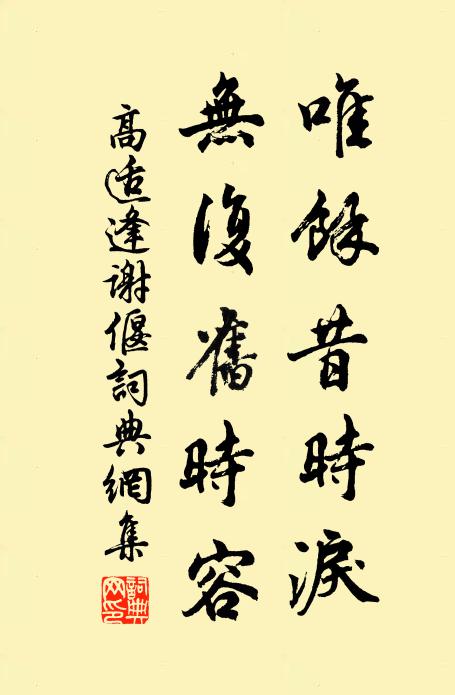 唯餘昔時淚
無復舊時容
高适逢謝偃詞典網集
詞典網印